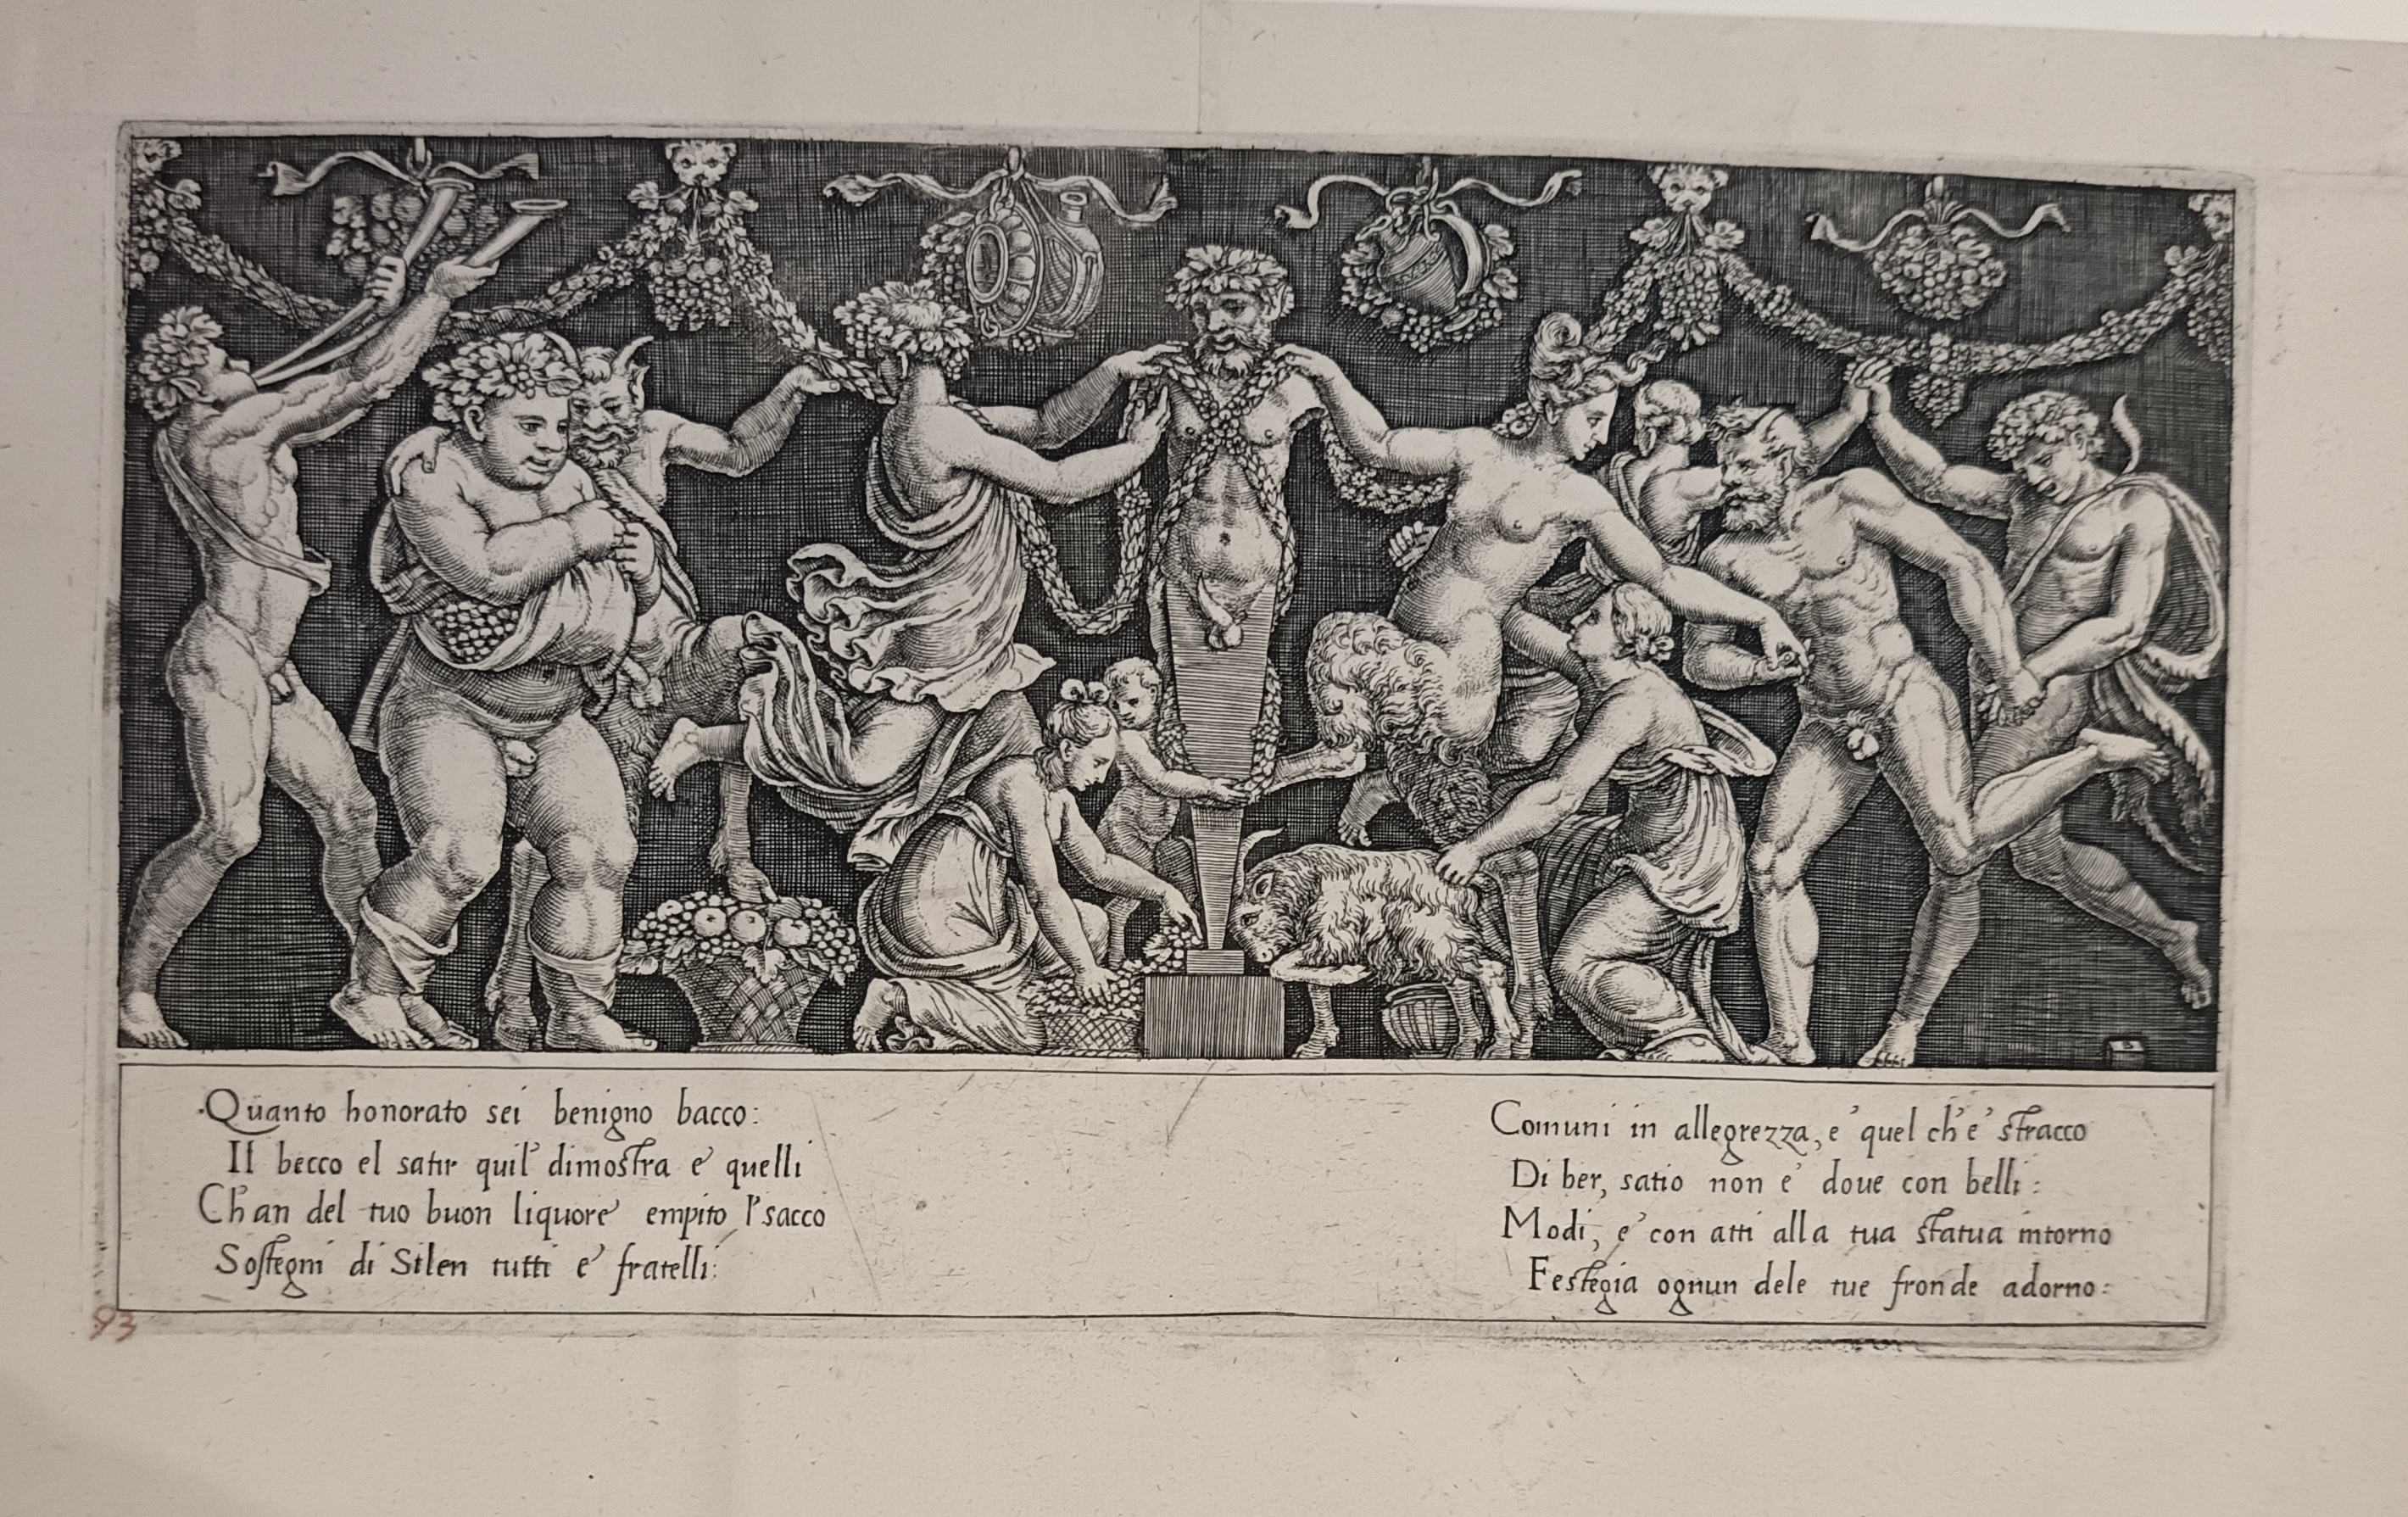 ·Quanto honorato sei benigno bacco:
Il becco el satir quil' dimostra e' quelli
Ch'an del tuo buon liquore' empito l'sacco
Sostegni di Silen tutti e' fratelli:
Comuni in allegrezza, e' quel ch'e' stracco
Di ber, satio non e' doue con belli:
Modi, e' con atti alla tua statua intorno
Festegia ognun dele tue fronde adorno:
B
93